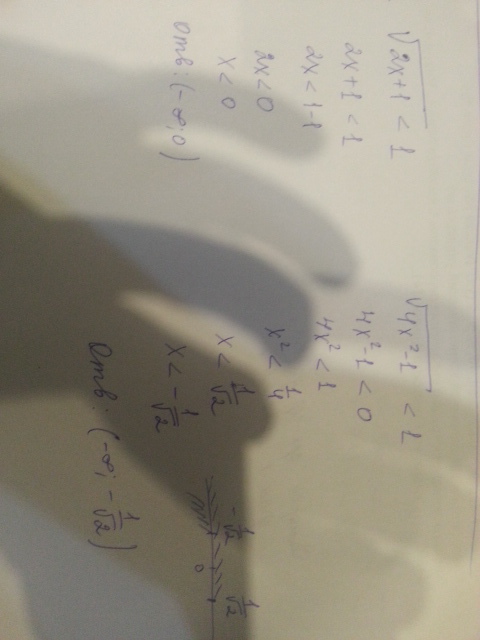 √2x+1 < 1
2x+1 < 1
2x < 1-1
2x < 0
x < 0
Отв: (-∞; 0)
√4x²-1 < 1
4x²-1 < 0
4x² < 1
x² < 1/4
x < 1/√2
x < -1/√2
-1/√2 0 1/√2
Отв: (-∞; -1/√2)